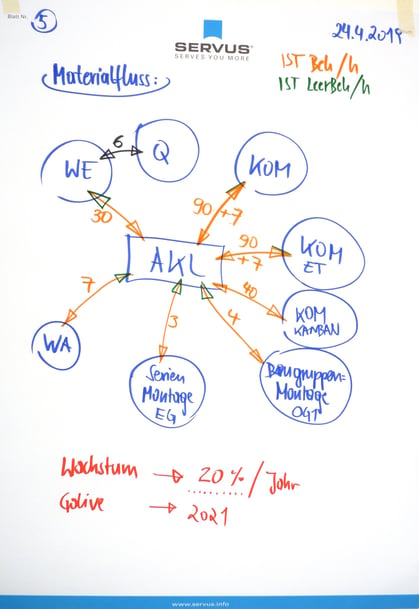 Blatt Nr. 5
SERVUS
SERVES YOU MORE
24.4.2019
IST Beh/h
IST LeerBeh/h
Materialfluss:
WE
6
Q
KOM
30
90 +7
AKL
90
+7
KOM
ET
7
3
4
40
KOM
KANBAN
WA
Serien
Montage
EG
Baugruppen=
Montage
OG1
Wachstum → 20%/Jahr
Golive → 2021
www.servus.info